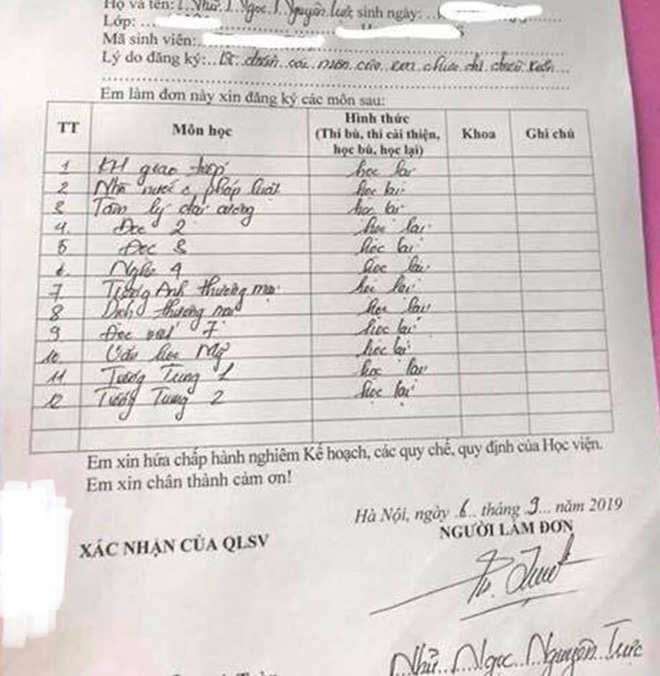 Họ và tên: Nhữ Ngọc Nguyên Trực sinh ngày:
Lớp:
Mã sinh viên:
Lý do đăng ký: các môn của em chưa
Em làm đơn này xin đăng ký các môn sau:
TT Môn học Hình thức (Thi bù, thi cải thiện, học bù, học lại) Khoa Ghi chú
1 KN giao tiếp học lại
2 Nhà nước & pháp luật học lại
3 Tâm lý đại cương học lại
4. Đọc 2 học lại
5 Đọc 3 học lại
6 Nghe 4 học lại
7 Tiếng Anh thương mại học lại
8 Dịch thương mại học lại
9 Đọc 7 học lại
10. Văn học Mỹ học lại
11 Tiếng Trung 1 học lại
12 Tiếng Trung 2 học lại
Em xin hứa chấp hành nghiêm Kế hoạch, các quy chế, quy định của Học viện.
Em xin chân thành cảm ơn!
Hà Nội, ngày 6 tháng 9 năm 2019
XÁC NHẬN CỦA QLSV NGƯỜI LÀM ĐƠN
Nhữ Ngọc Nguyên Trực